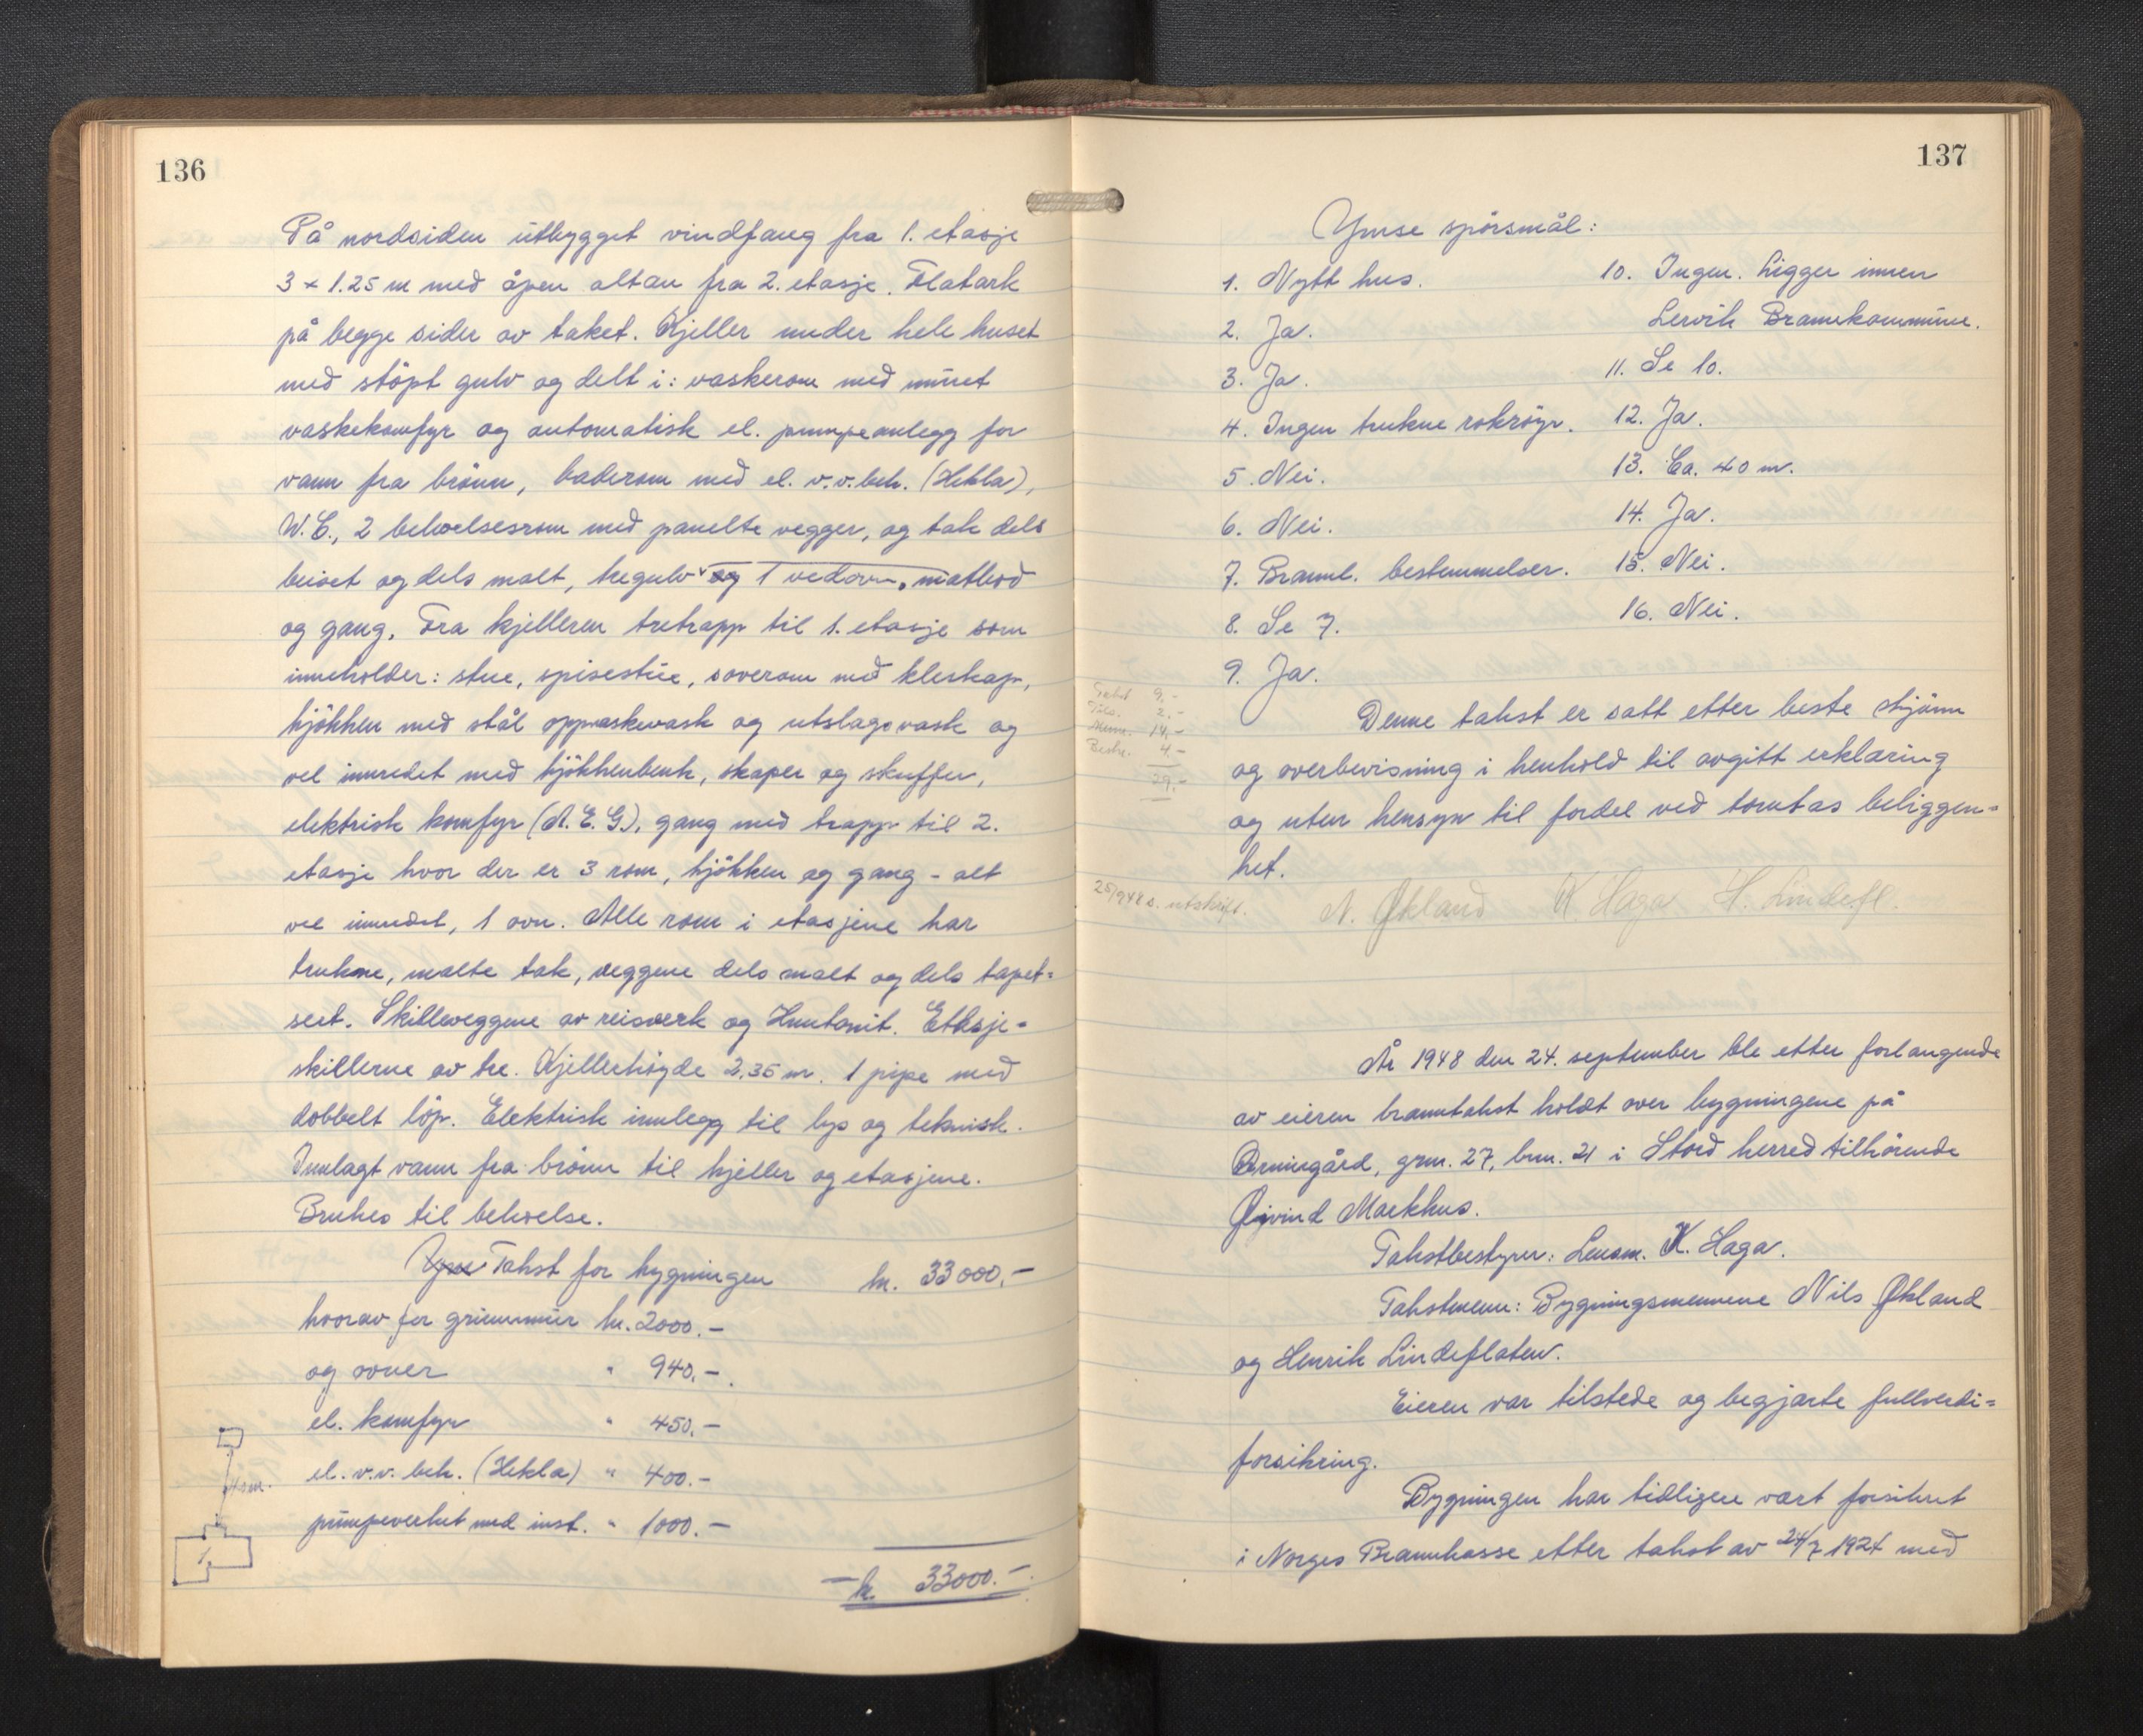 136
På nordsiden utbygget vindfang fra 1. etasje
3 x 1.25 m med åpen altan fra 2. etasje. Flatark
på begge sider av taket. Kjeller under hele huset
med stöpt gulv og delt i: vaskerom med muret
vaskekomfyr og automatisk el. pumpeanlegg for
vann fra brönn, baderom med el. v.v.beh. (Hekla),
W.C., 2 behoelsesrom med panelte vegger, og tak dels
beiset og dels malt, tregulv og 1 vedovn, matbod
og gang. Fra kjelleren tretrapp til 1. etasje som
inneholder: stue, spisestue, soverom med kleskap,
kjökken med stål oppvaskevask og utslagsvask og
vel innredet med kjökkenbenk, skaper og skuffer,
elektrisk komfyr (A.E.G.), gang med trapp til 2.
etasje hvor der er 3 rom, kjökken og gang - alt
vel innredet, 1 ovn. Alle rom i etasjene har
trukne, malte tak, veggene dels malt og dels tapet=
sert. Skilleveggene av reisverk og Huntonit. Etasje-
skillerne av tre. Kjellerhöyde 2.35 m. 1 pipe med
dobbelt löp. Elektrisk innlegg til lys og teknisk.
Innlagt vann fra brönn til kjeller og etasjene.
Brukes til behoelse.
Takst for bygningen kr. 33000.-
hvorav for grunnmur kr. 2000.-
og ovner " 940.-
el. komfyr " 450.-
el. v.v. beh. (Hekla) " 400.-
pumpeverket med inst. " 1000.-
- kr. 33000.-
1.
137
Ymse spörsmål:
1. Nytt hus.
2. Ja.
3. Ja.
4. Ingen trukne rökröyr.
5. Nei.
6. Nei.
7. Brannl. bestemmelser.
8. Se 7.
9. Ja.
10. Ingen. Ligger innen
Lervik Brannkommune.
11. Se 10.
12. Ja.
13. Ca. 40 m.
14. Ja.
15. Nei.
16. Nei.
Takst 9.-
2.-
14.-
4.-
29.-
Denne takst er satt etter beste skjönn
og overbevisning i henhold til avgitt erklæring
og uten hensyn til fordel ved tomtas beliggen=
het.
25/9 48 s. utskrift.
N. Økland K Haga H. Lindefl.
År 1948 den 24. september ble etter forlangende
av eieren branntakst holdt over bygningene på
grnr. 27, bnr. 21 i Stord herred tilhörende
Øjvind Markhus.
Takstbestyrer: Lensm. K. Haga.
Takstmenn: Bygningsmennene Nils Økland
og Henrik Lindeflaten.
Eieren var tilstede og begjærte fullverdi=
forsikring.
Bygningen har tidligere vært forsikret
i Norges Brannkasse etter takst av 24/7 1927 med